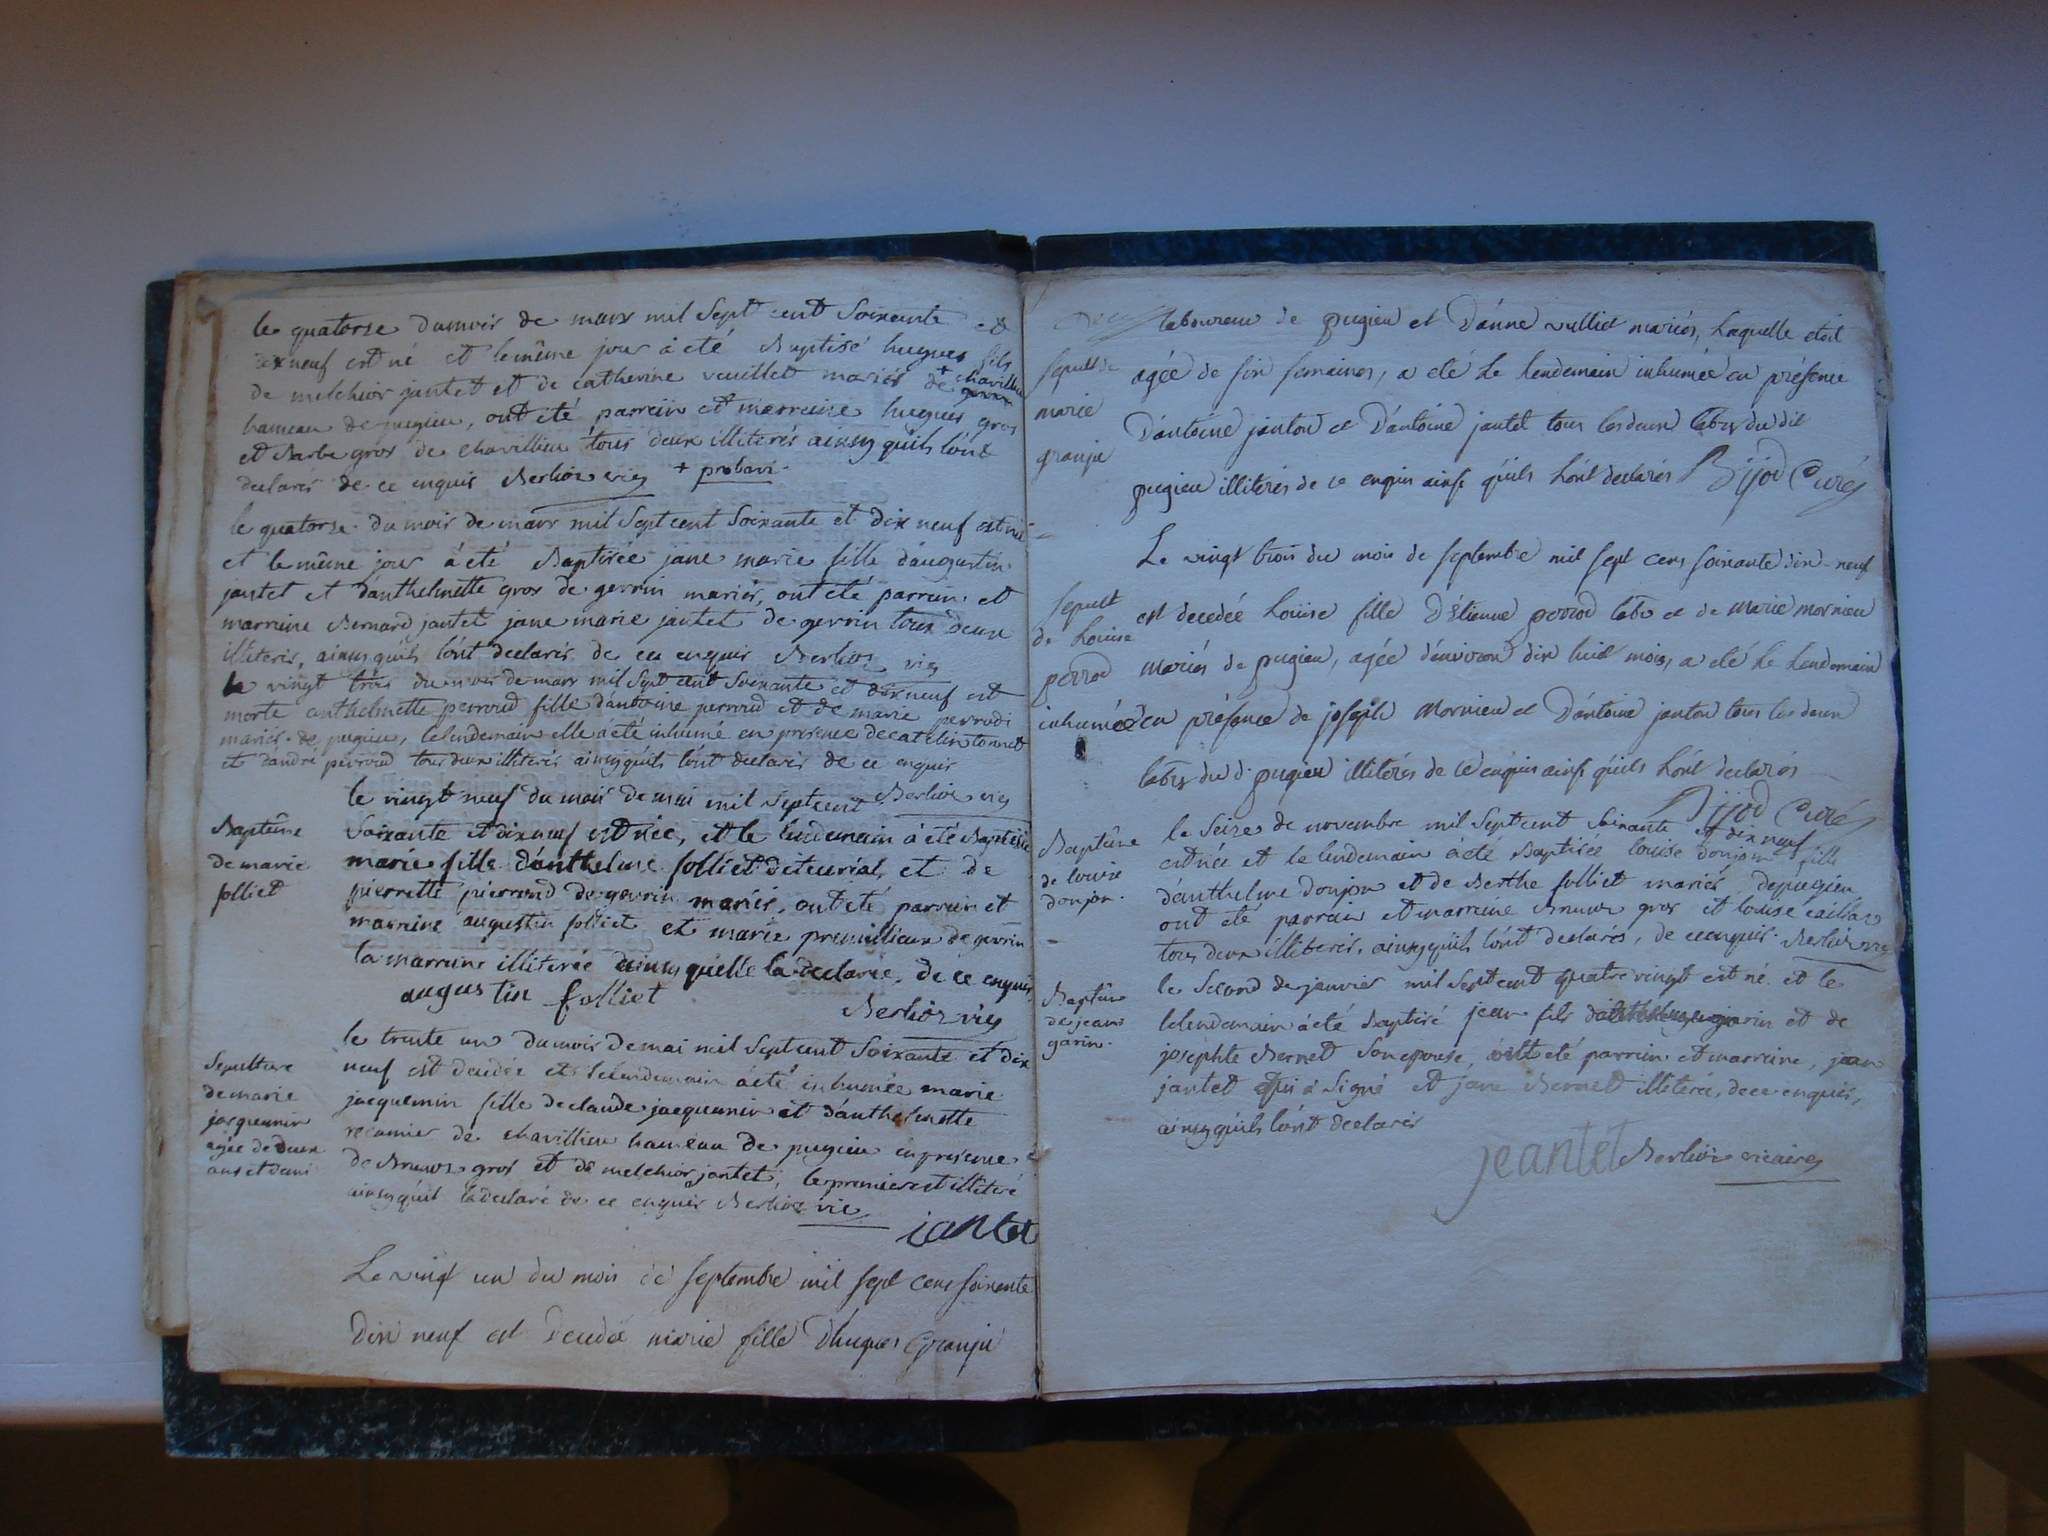 le quatorse dumois de mars mil sept cent soixante et
dixneuf est né et lemême jour à été Baptisé hugues fils
de melchior jantet et de catherine vuillet mariés de + chavillieu
hameau de pugieu, ont été parrein et marreine hugues gros
et Barbe gros de chavillieu tous deux illiterés ainsy quils lont
declarés de ce enquis Berlioz vic + probavi
le quatorse du mois de mars mil sept cent soixante et dix neuf est né
et le même jour à été Baptisée jane marie fille d'augustin
jantet et d'anthelmette gros de gevrin mariés, ont été parrein et
marreine Bernard jantet jane marie jantet de gevrin tous deux
illiterés, ainsy quils l'ont declarés de ce enquis Berlioz vic
le vingt trois du mois de mars mil sept cent soixante et dix neuf est
morte anthelmette perroud fille d'antoine perroud et de marie
mariés de pugieu, lelendemain elle à été inhumé en presence de
et d'andré perroud tous deux illiterés ainsy quils l'ont declarés de ce enquis
Berlioz vic
Baptême
de marie
folliet
le vingt neuf du mois de mai mil sept cent
soixante et dix neuf est née, et le lendemain à été Baptisée
marie fille d'anthelme folliet et de
pierrette pierrend de gevrin mariés, ont été parrein et
marreine augustin folliet et marie premillieux de gevrin
la marreine illiterée ainsy quelle la declarée, de ce enquis
augustin folliet
Berlioz vic
Sepulture
de marie
jacquemin
agée de deux
ans et demi
le trente un du mois de mai mil sept cent soixante et dix
neuf est decedée et lelendemain à été inhumée marie
jacquemin fille de claude jacquemin et d'anthelmette
recamier de chavillieu hameau de pugieu en presence
de Bruno gros et de melchior jantet, le premier est illiteré
ainsy quil la declaré de ce enquis Berlioz vic
jantet
Le vingt un du mois de septembre mil sept cens soixante
dix neuf est decedée marie fille d'hugues Granju
sepult de
marie
granju
laboureur de pugieu et d'anne vulliet mariés, laquelle etoit
agée de six semaines, a eté le lendemain inhumée en présence
d'antoine janton et d'antoine jantet tous les deux labrs du dit
pugieu illiterés de ce enquis ainsi quils l'ont declarés Bijod Curé
sepult
de Louise
perrod
Le vingt trois du mois de septembre mil sept cens soixante dix-neuf
est decedée Louise fille d'Etienne perrod labr et de marie mornieu
mariés de pugieu, agée d'environ dix huit mois, a eté le lendemain
inhumée en présence de joseph mornieu et d'antoine janton tous les deux
labrs du d. pugieu illiterés de ce enquis ainsi quils l'ont declarés
Bijod Curé
Baptême
de louise
donjon.
le seize de novembre mil sept cent soixante et dix neuf
est née et le lendemain à été Baptisée louise donjon fille
d'anthelme donjon et de Berthe folliet mariés de pugieu
ont été parrein et marreine Bruno gros et louise
tous deux illiterés, ainsy quils l'ont declarés, de ce enquis. Berlioz vic
Baptême
de jean
garin.
le second de janvier mil sept cent quatre vingt est né et le
lelendemain à été Baptisé jean fils garin et de
josephte Bernet son epouse, ont été parrein et marreine, jean
jantet qui à signé et jane Bernet illiterée, de ce enquis,
ainsy quils l'ont declarés
jeantet Berlioz vicaire